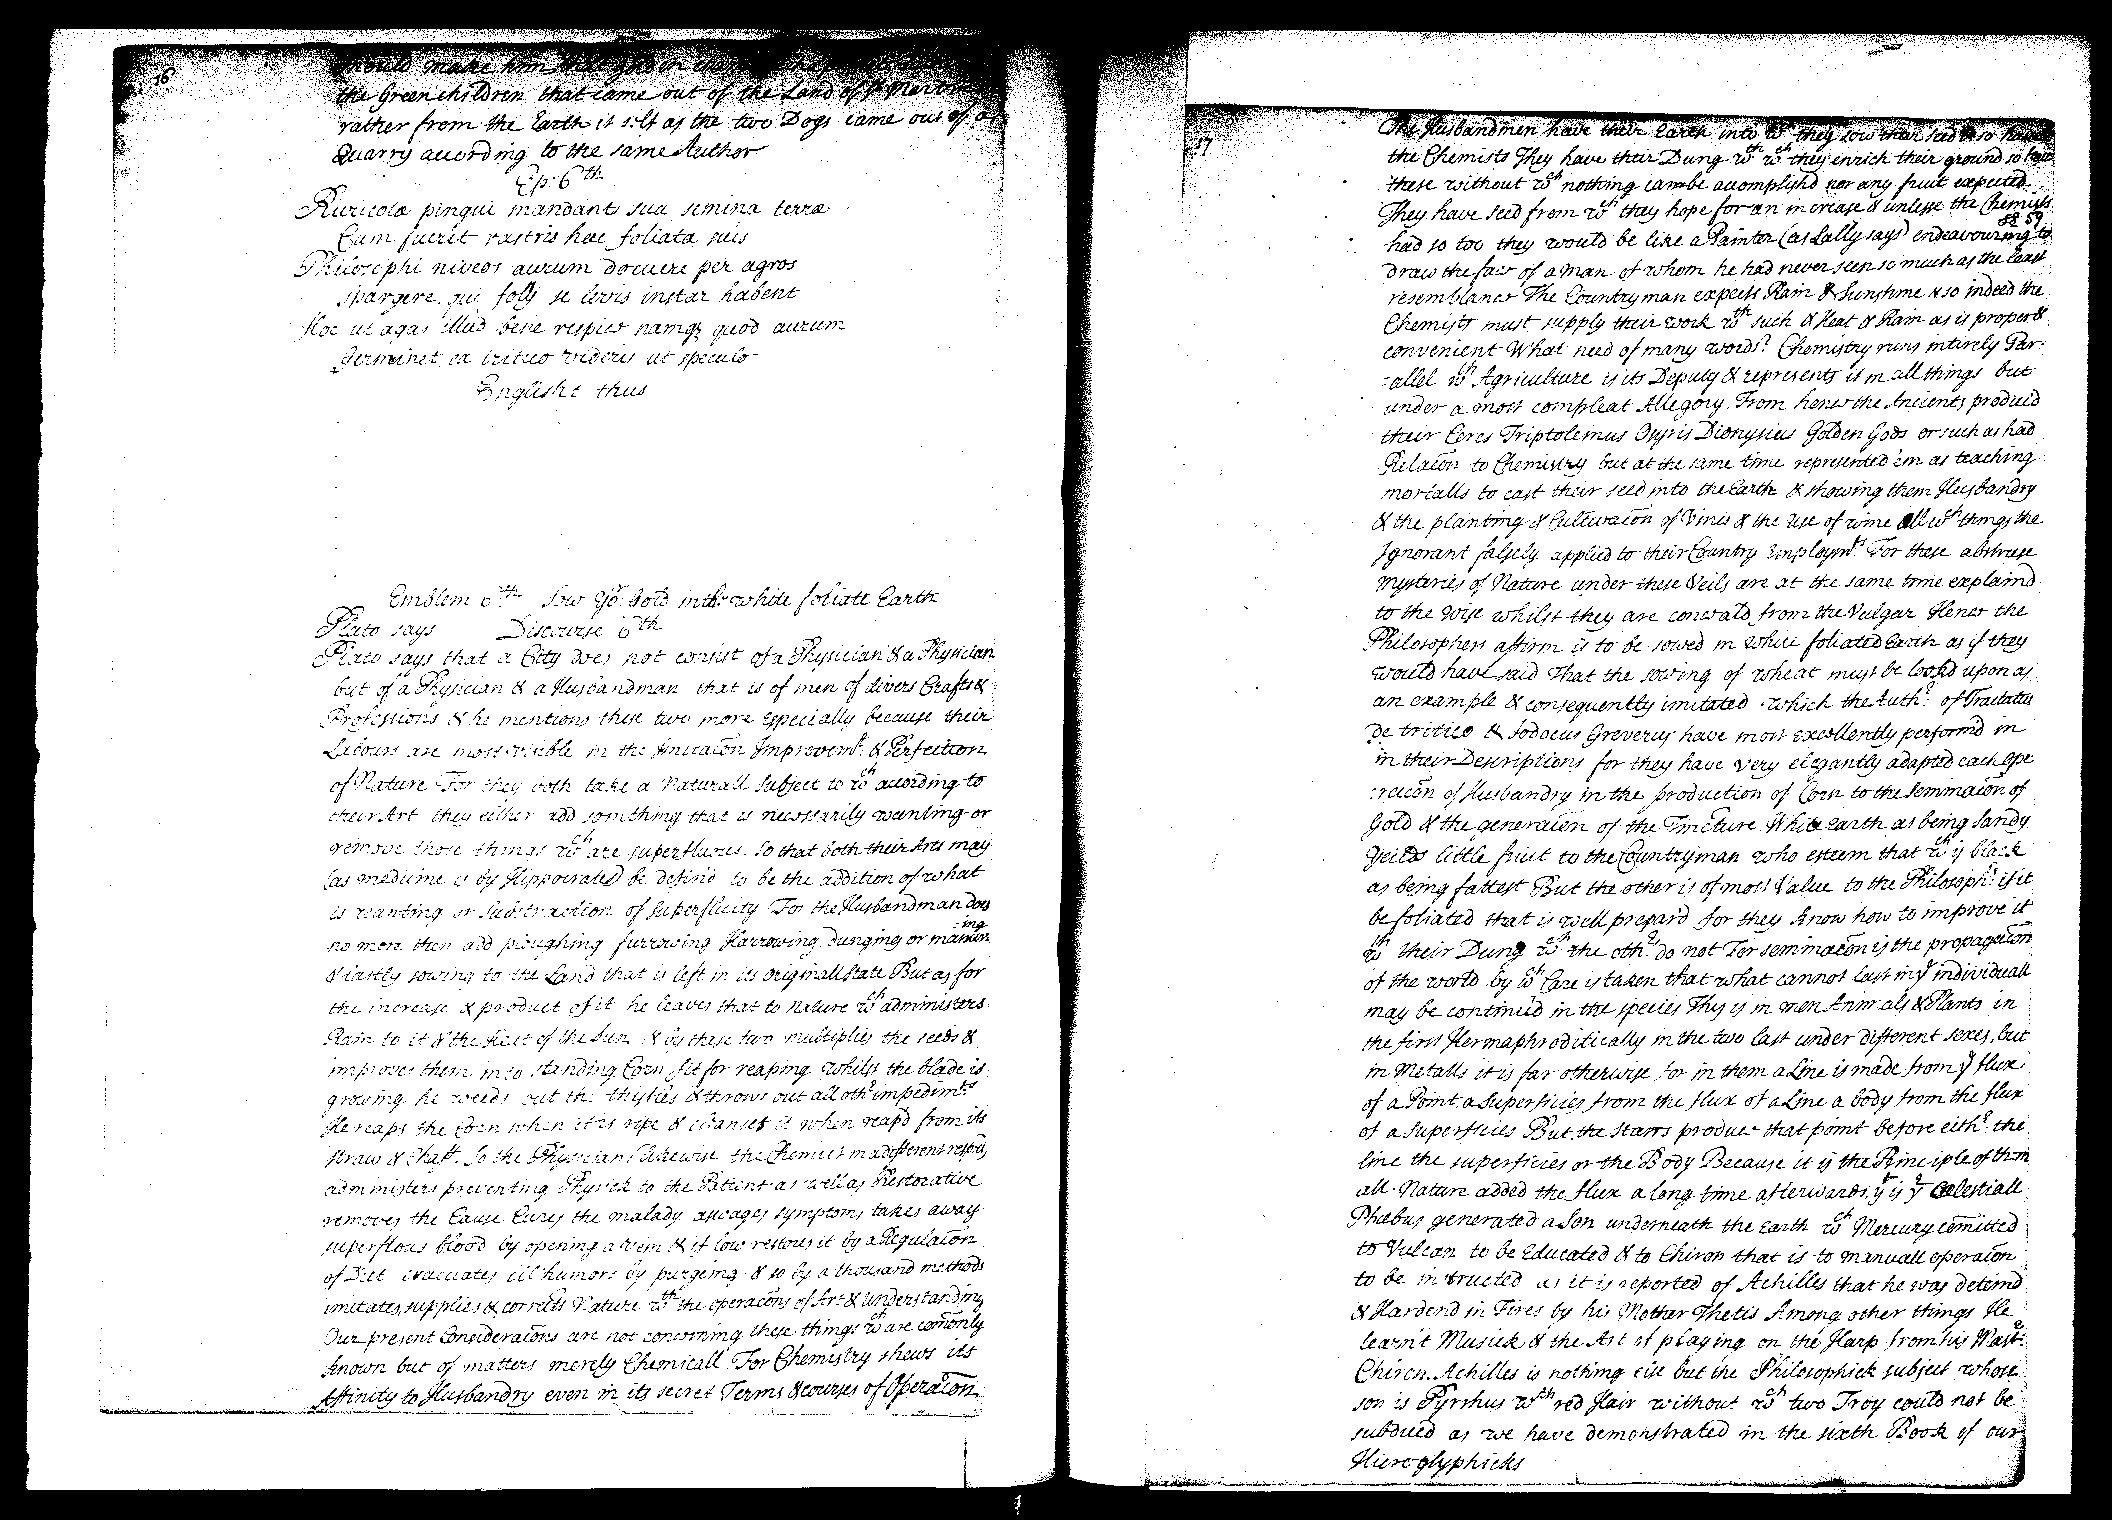 16
should make him
the Green children that came out of the Land of St Martin
rather from the Earth it self as the two Dogs came out of a
Quarry according to the same Author
Ep: 6th
Ruricolæ pingui mandant sua semina terræ
Cum fuerit rastris hæc foliata suis
Philosophi niveos aurum docuere per agros
spargere qui folij se levis instar habent
Hoc ut agas illud bene respice namq; quod aurum
Germinet ex tritico videris ut speculo
Englisht thus
Emblem 6th Sow yor Gold in the white foliate Earth
Plato says Discourse 6th
Plato says that a Citty does not consist of a Physician & a Physician
but of a Physician & a Husbandman that is of men of divers Crafts &
Professions & he mentions these two more Especially because their
Labours are most visible in the Imitacōn Improvemt & Perfection
of Nature For they both take a Naturall Subject to wch according to
their Art they either add somthing that is necessarily wanting or
remove those things wch are superfluous. So that both their Arts may
(as medicine is by Hippocrates) be defind to be the addition of what
is wanting or substraction of superfluity For the Husbandman does
no more then add ploughing furrowing Harrowing dunging or manuring
& lastly sowing to the Land that is left in its originall state But as for
the increase & product of it he leaves that to nature wch administers
Rain to it & the Heat of the Sun & by these two multiplies the seeds &
improves them into standing Corn fit for reaping whilst the blade is
growing he weeds out the thistles & throws out all othr impedimts
He reaps the Corn when it is ripe & cleanses it when reapd from its
straw & Chaff. So the Physician (likewise the Chemist in a different respect)
administers preventing Physick to the Patient as well as Restorative
removes the Cause Cures the malady asswages symptoms takes away
superflous blood by opening a vein & if low restores it by a Regulacōn
of Diet evacuates ill humors by purgeing & so by a thousand methods
imitates, supplies & corrects Nature wth the operacōns of Art & understanding
Our present Consideracōns are not concerning these things wch are comōnly
known but of matters merely Chemicall For Chemistry shews its
Affinity to Husbandry even in its secret Terms & courses of Operacōn
17
The Husbandmen have their Earth into wch they sow their seed & so have
the Chemists They have their Dung wth wch they enrich their ground so have
these without wch nothing can be accomplishd nor any fruit expected
They have seed from wch they hope for an increase & unlesse the Chemists
58 59
had so too they would be like a Painter (as Lully says) endeavouring to
draw the face of a man of whom he had never seen so much as the least
resemblance The Countryman expects Rain & Sunshine & so indeed the
Chemists must supply their work wth such & Heat & Rain as is proper &
convenient What need of many words? Chemistry runs intirely Par:
=allel wth Agriculture is its Deputy & represents it in all things but
under a most compleat Allegory. From hence the Ancients producd
their Ceres Triptolemus Osyris Dionysius Golden Gods or such as had
Relacōn to Chemistry but at the same time represented 'em as teaching
mortalls to cast their seed into the Earth & showing them Husbandry
& the planting & Cultivacōn of Vines & the use of wine All wch things the
Ignorant falsely applied to their Country Employmts. For these abstruse
mysteries of Nature under these Veils are at the same time explaind
to the Wise whilst they are conceald from the Vulgar Hence the
Philosophers affirm it is to be sowed in White foliated Earth as if they
would have said That the sowing of wheat must be lookd upon as
an example & consequently imitated which the Authr of Tractatus
De tritico & Jodocus Greverus have most excellently performd in
in their Descriptions for they have very elegantly adapted each ope
:racōn of Husbandry in the production of Corn to the Seminacōn of
Gold & the generacōn of the Tincture White Earth as being Sandy
yeilds little fruit to the Countryman who esteem that wch is black
as being fattest But the other is of most Value to the Philosophr if it
be foliated that is well prepard for they know how to improve it
wth their Dung wch the othrs do not For seminacōn is the propagacōn
of the world by wch Care is taken that what cannot last in ye individuall
may be continued in the species This is in men Animals & Plants in
the first Hermaphroditically in the two last under different sexes, but
in Metalls it is far otherwise for in them a Line is made from ye flux
of a Point a Superficies from the flux of a Line a body from the flux
of a Superficies But the Starrs produce that point before eithr the
line the superficies or the Body Because it is the Principle of them
all. Nature added the flux a long time afterwards, yt is ye Celestiall
Phœbus generated a Son underneath the Earth wch Mercury comitted
to Vulcan to be Educated & to Chiron that is to manuall operacōn
to be instructed as it is reported of Achilles that he was detaind
& Hardend in Fires by his Mother Thetis Among other things He
learn't Musick & the Art of playing on the Harp from his Mastr
Chiron. Achilles is nothing else but the Philosophick subject whose
son is Pyrrhus wth red Hair without wch two Troy could not be
subdued as we have demonstrated in the sixth Book of our
Hieroglyphicks